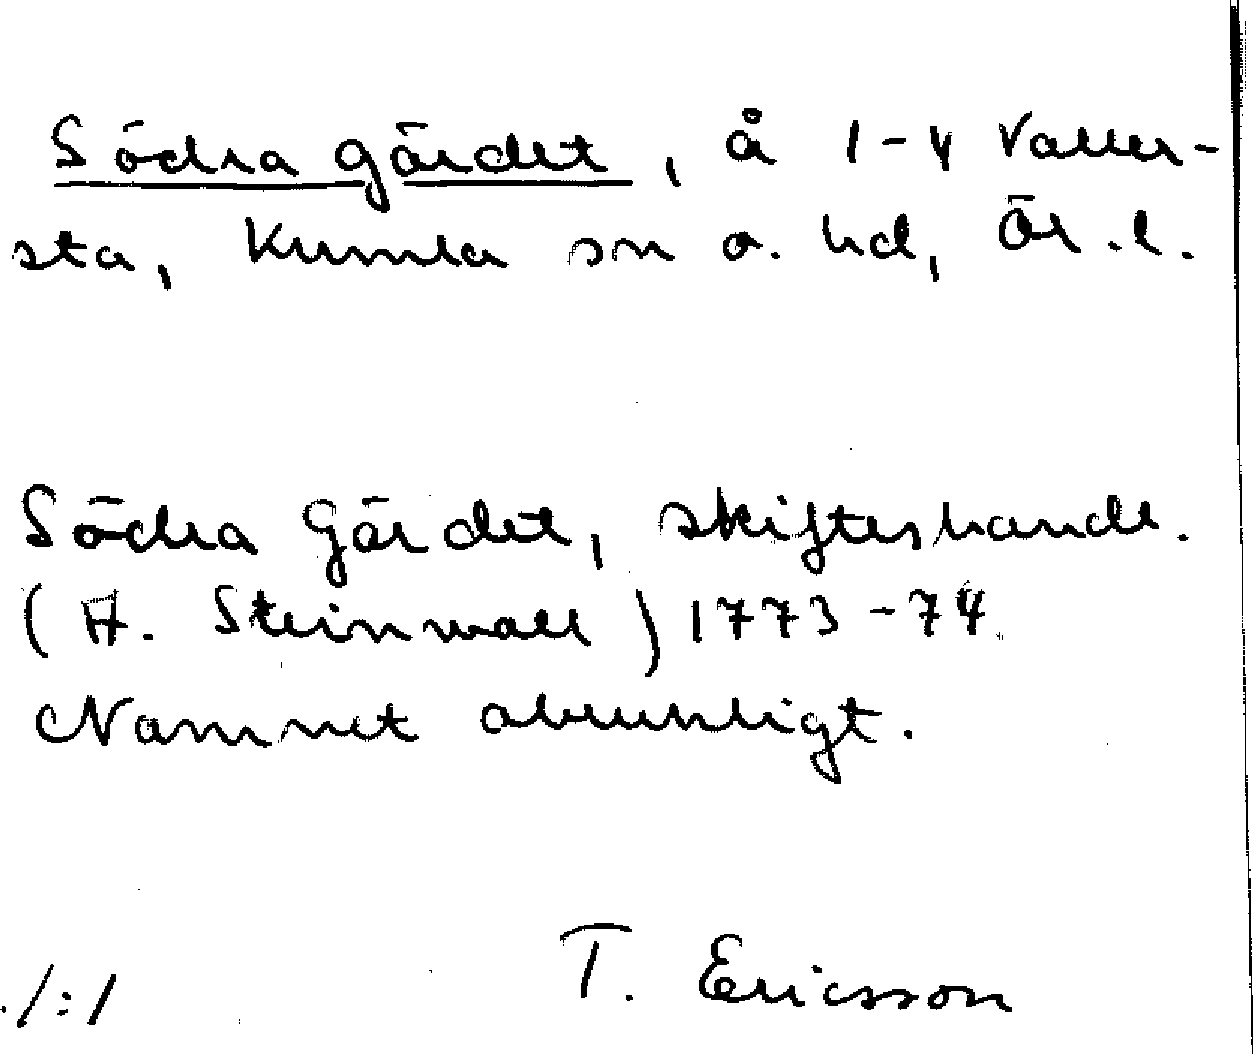 Södra gärdet, å 1-4 Valler-
sta, Kumla sn o. hd, Ör. l.
Södra Gärdet, skifteshandl.
(A. Steinwall) 1773-74.
Namnet obrukligt.
T. Ericsson
./:1